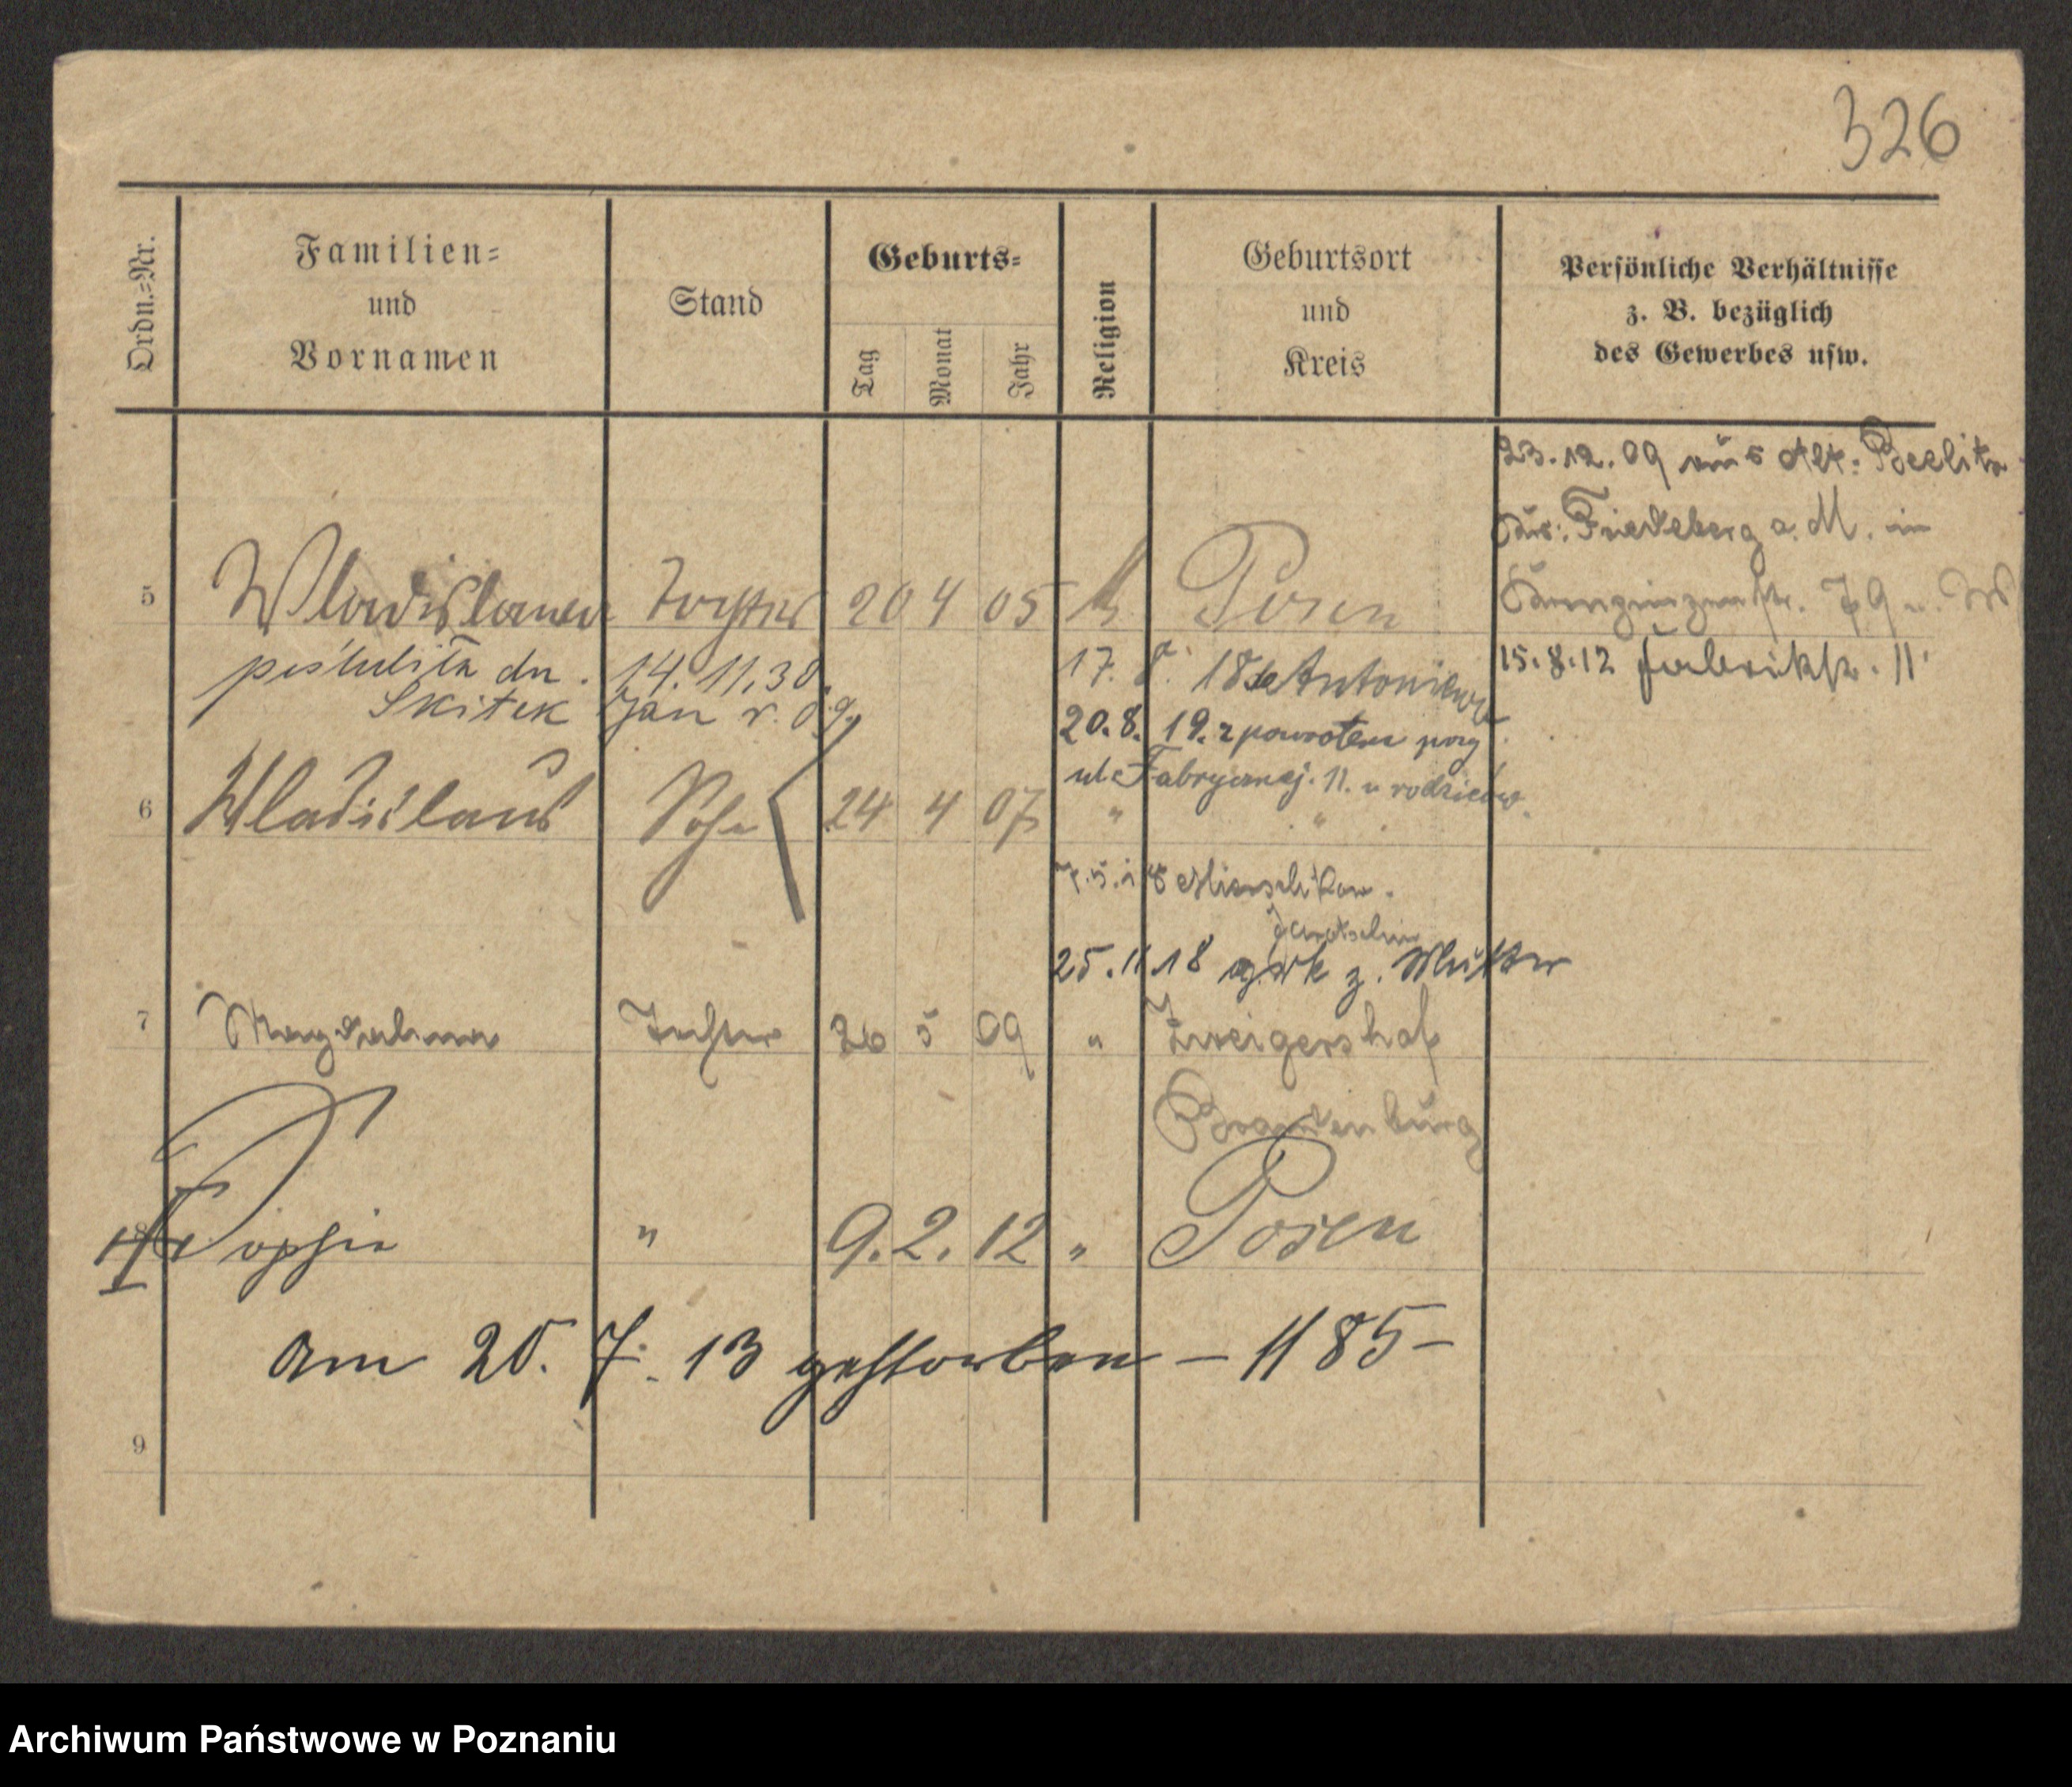 326
Ordn.-Nr.
Familien-
und
Vornamen
Stand
Geburts-
Tag
Monat
Jahr
Religion
Geburtsort
und
Kreis
Persönliche Verhältnisse
z. B. bezüglich
des Gewerbes usw.
23.12.09 aus Alt-
Friedeberg a. M. in
5 Wladislawa Tochter 20 4 05 k. Posen
15.8.12 Fabrikstr. 11
poślubiła dn. 14.11.30.
Skitek Jan r. 09.
17. 8. 18 Antoniewo
20.8. 19. z powrotem przy
ul. Fabrycznej. 11. u rodziców.
6 Wladislaus Sohn 24 4 07 " "
18
Jarotschin
25.11.18 zrk z. Mutter
7 Magdalena Tochter 26 5 09 " Zweigershof
Brandenburg
8 Sophie " 9.2.12 " Posen
am 20. 7. 13 gestorben - 1185 -
9
Archiwum Państwowe w Poznaniu